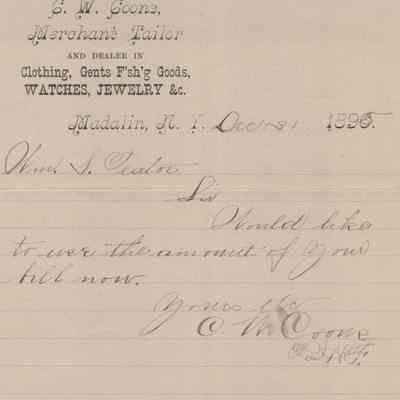 C. W. Coons,
Merchant Tailor
AND DEALER IN
Clothing, Gents F'sh'g Goods,
WATCHES, JEWELRY &c.
Madalin, N. Y. Dec 31 1895.
Wm. S. Teator
Sir
Would like
to use the amount of your
bill now.
Yours &c
C. W. Coons